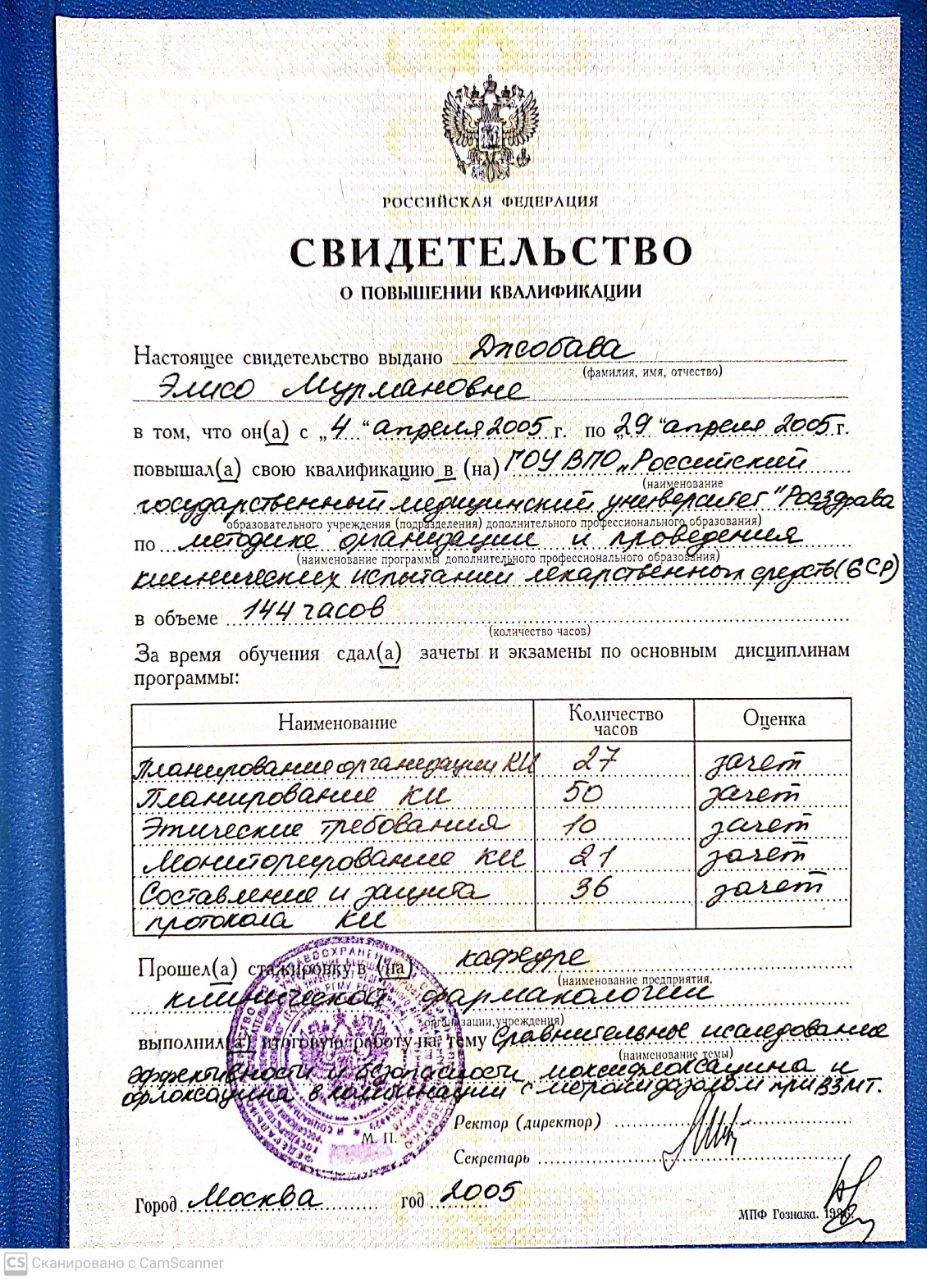 РОССИЙСКАЯ ФЕДЕРАЦИЯ
СВИДЕТЕЛЬСТВО
О ПОВЫШЕНИИ КВАЛИФИКАЦИИ
Настоящее свидетельство выдано Джобава
(фамилия, имя, отчество)
Элисо Мурмановне
в том, что он(а) с „4“ апреля 2005 г. по „29“ апреля 2005 г.
повышал(а) свою квалификацию в (на) ГОУ ВПО „Российский
(наименование
государственный медицинский университет" Росздрава
образовательного учреждения (подразделения) дополнительного профессионального образования)
по методике организации и проведения
(наименование программы дополнительного профессионального образования)
клинических испытаний лекарственных средств (GCP)
в объеме 144 часов
(количество часов)
За время обучения сдал(а) зачеты и экзамены по основным дисциплинам
программы:
Наименование Количество часов Оценка
Планирование организации КИ 27 зачет
Планирование КИ 50 зачет
Этические требования 10 зачет
Мониторирование КИ 21 зачет
Составление и защита 36 зачет
протокола КИ
Прошел(а) стажировку в (на) кафедре
(наименование предприятия,
клинической фармакологии
организации, учреждения)
выполнил(а) итоговую работу на тему Сравнительное исследование
(наименование темы)
эффективности и безопасности моксифлоксацина и
офлоксацина в комбинации с метронидазолом при ВЗМТ.
Ректор (директор)
М. П.
Секретарь
Город Москва год 2005
МПФ Гознака. 1996.
CS Сканировано с CamScanner